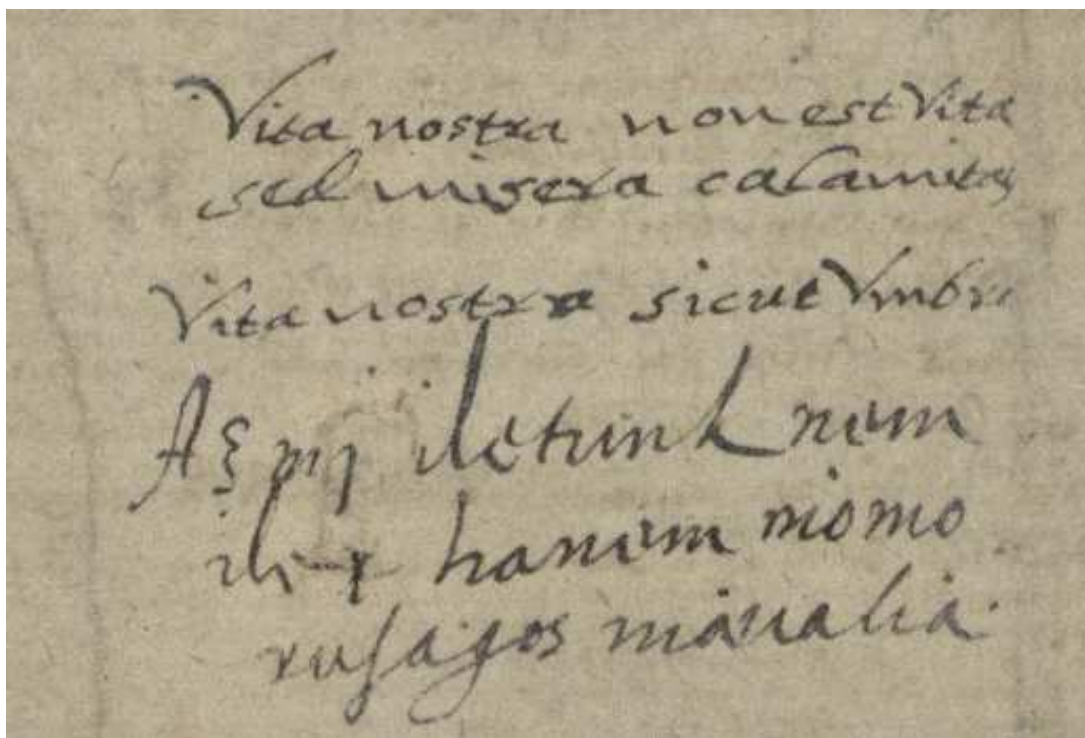 Vita nostra non est Vita
sed misera calamitas
Vita nostra sicut Vmbra
Az mÿ iletünk nem
ilet hanem niomo
rusagos